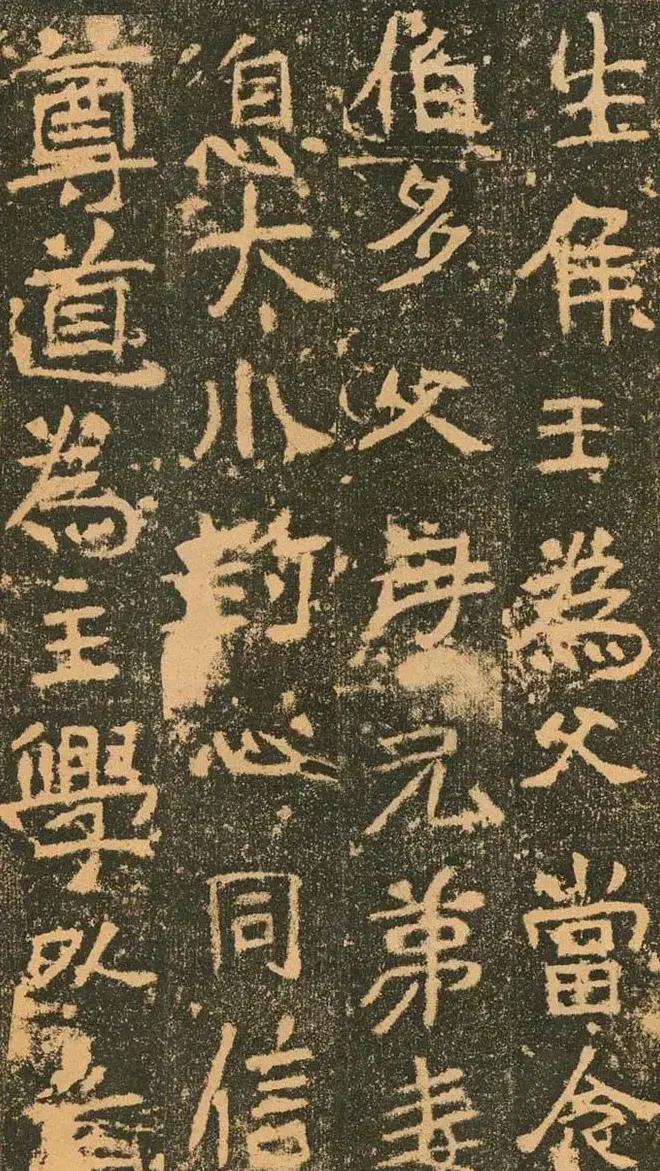 生侯王為父當念
伯多父母兄弟妻
息大小心同信
尊道為主學以